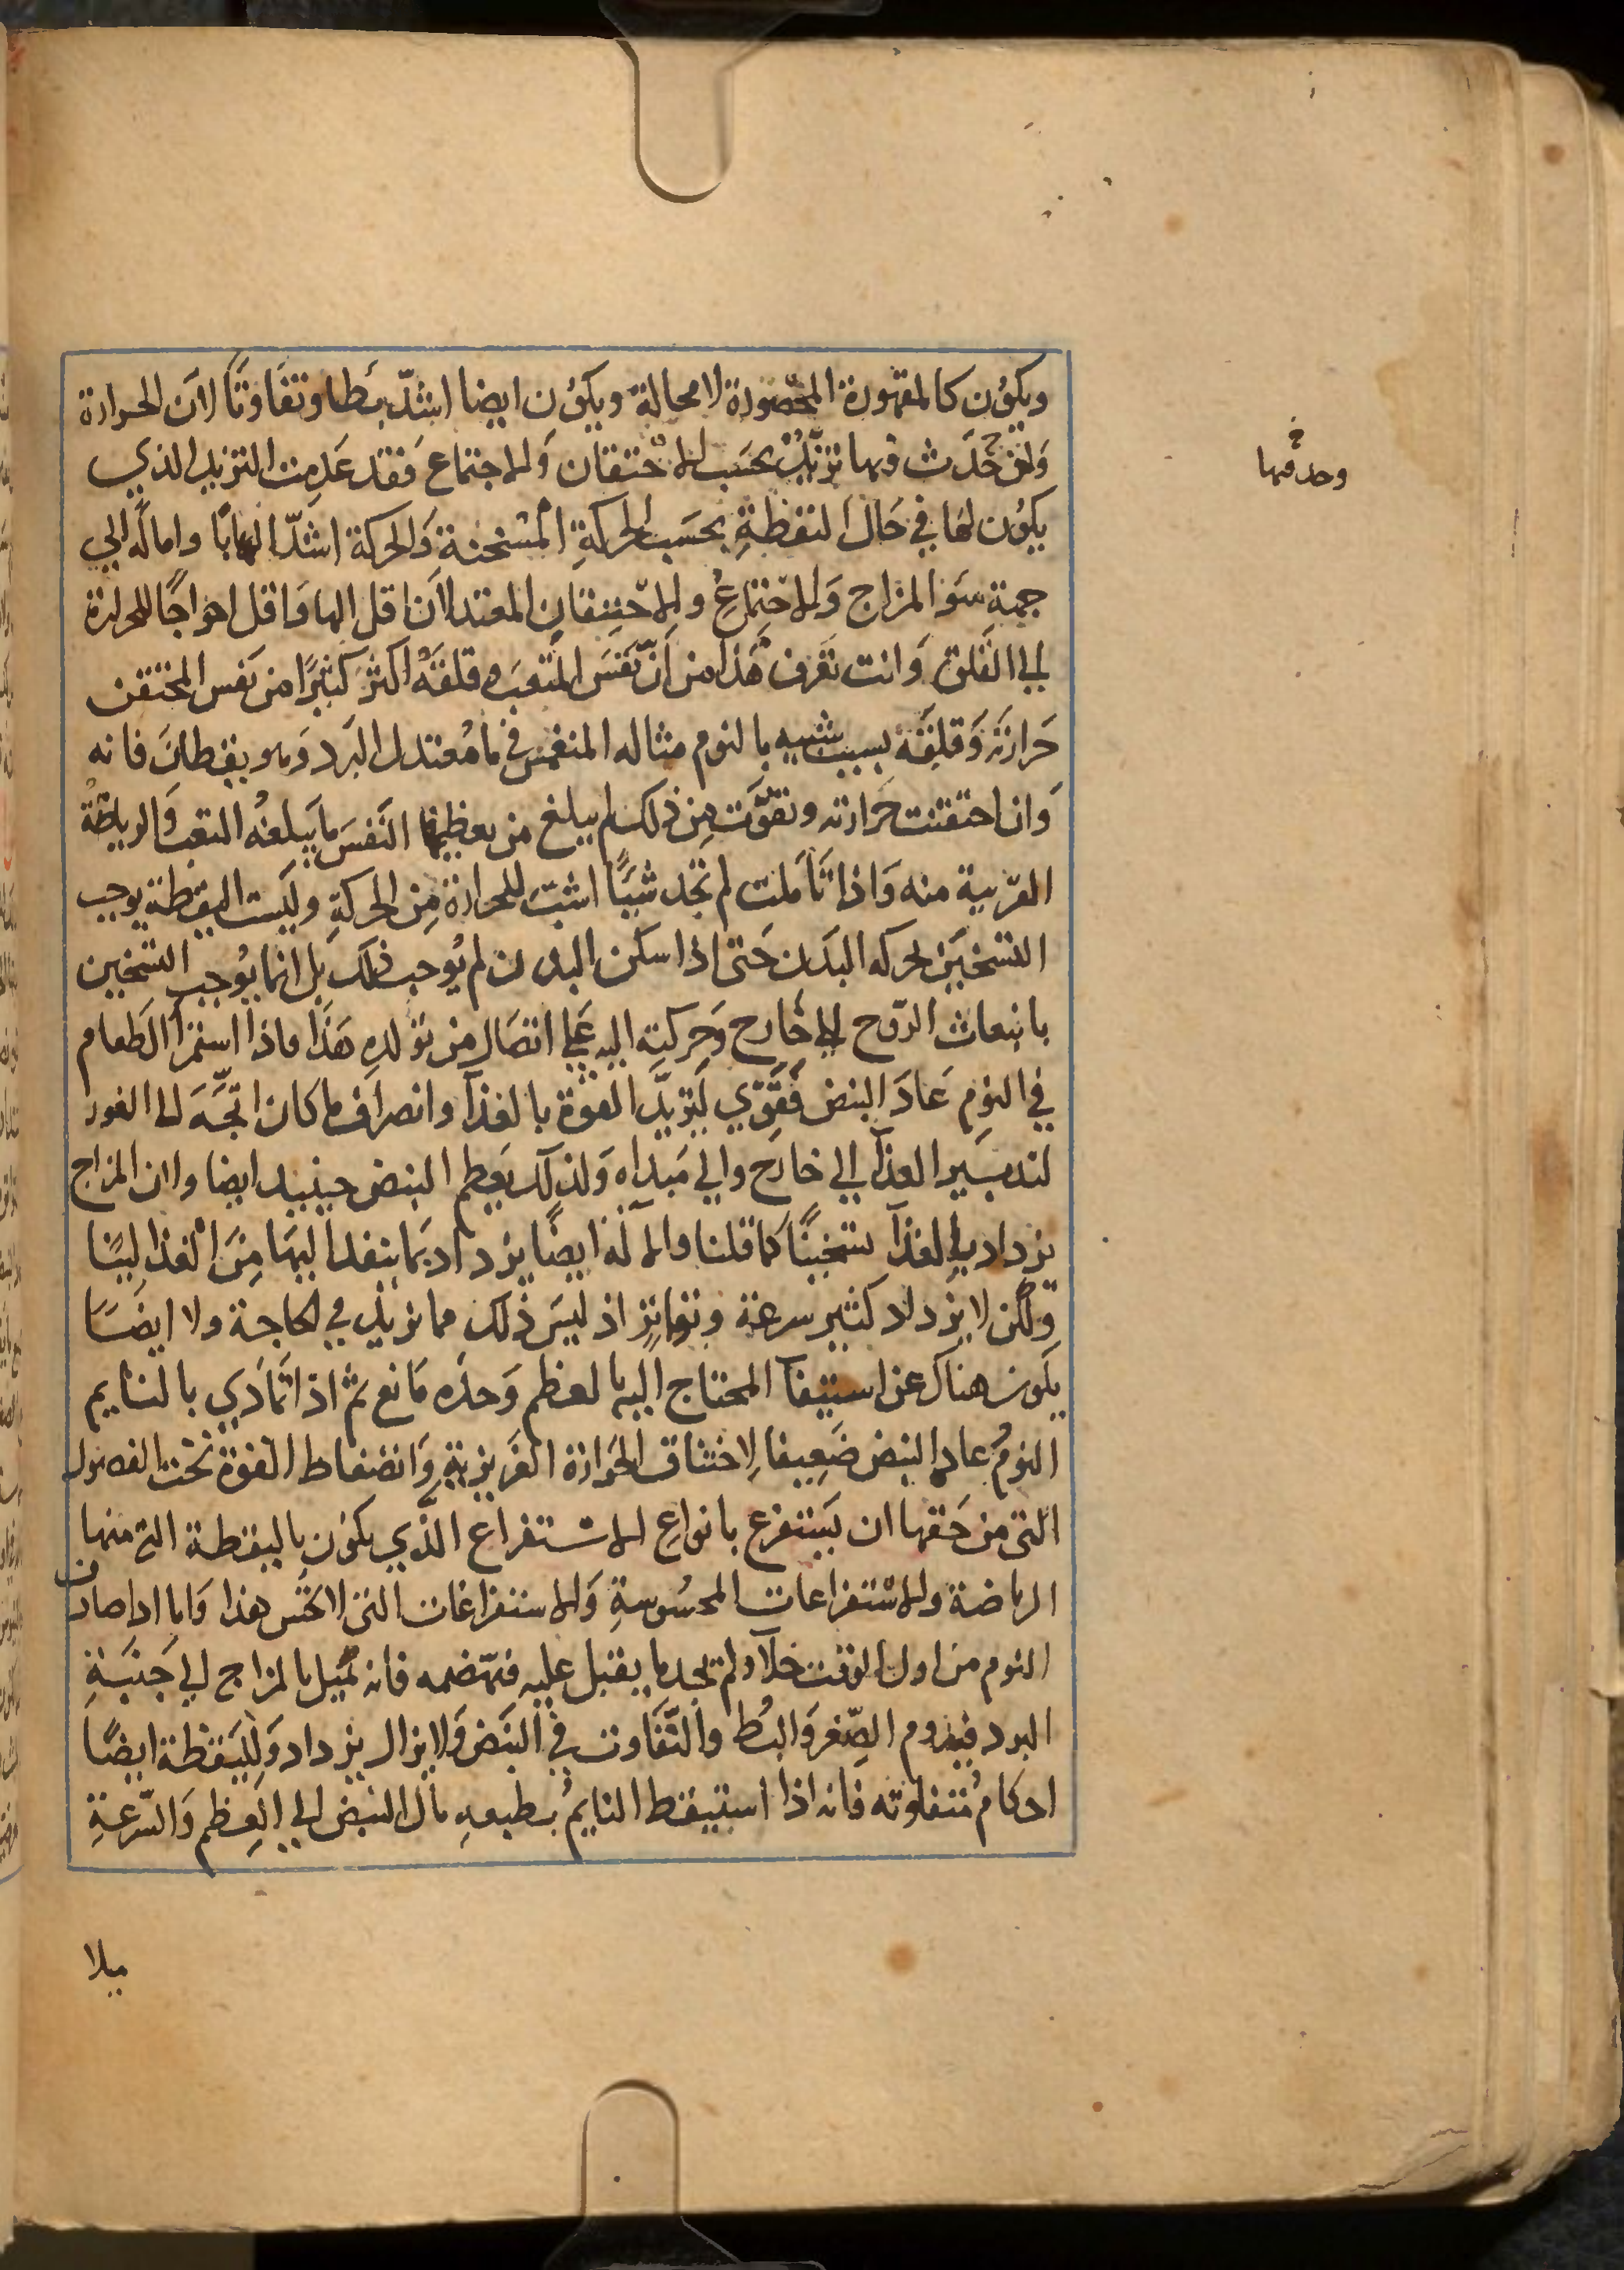 ويكون كالمقهورة المحصورة لا محالة ويكون ايضا اشدّ بطا وتفاوتًا لان الحرارة
وان حدث فيها تزيّد بحسب الاحتقان والاجتماع فقد عدمت التزيد الذي
يكون لها في حال اليقظة بحسب الحركة المسخنة والحركة اشدّ الهابا واماله الي
جهة سو المزاج والاجتماع والاحتقان المعتدلان اقل الهابا واقل اخراجًا للحرارة
الي القلق وانت تعرف هذا من انّ نفس المتعب وقلقه اكثر كثيرًا من نفس المحتقن
حرارته وقلقه بسبب شبيه بالنوم مثاله المنغمس في ما معتدل البرد وهو يقظان فانه
وان احتقنت حرارته وتقوّت من ذلك لم يبلغ من تعظيمها النفس ما يبلغه التعب والرياضة
القريبة منه واذا تاملت لم تجد شيًا اشبّ للحرارة من الحركة وليست اليقظة يوجب
التسخين لحركه البدن حتى اذا سكن البدن لم يوجب ذلك بل انما يوجب التسخين
بانبعاث الروح الي خارج وحركته اليه علي اتصال من تولده هذا فاذا استمرا الطعام
في النوم عاد النبض فقوي لتزيّد القوة بالغذا وانصراف ما كان اتجّه الي الغور
لتدبير الغذا الي خارج والي مبداه ولذلك يعظم النبض حينيد ايضا وان المزاج
يزداد بالغذا تسخينًا كما قلنا والاله ايضًا يزداد بما ينفد اليها من الغذا لينًا
ولكن لا يزداد كثير سرعة وتواتر اذ ليس ذلك مما يزيد في الحاجة ولا ايضًا
يكون هناك عن استيفا المحتاج اليه بالعظم وحده مانع ثم اذا تمادي بالنايم
النوم عاد النبض ضعيفا لاختناق الحرارة الغريزية وانضغاط القوة تحت الفضول
التي من حقها ان يستفرغ بانواع الاستفراغ الذّي يكون باليقظة التي منها
الرياضة والاستفراغات المحسوسة والاستفراغات التي لا تحس هذا واما اذا صادف
النوم من اول الوقت خلاء ولم تجد ما يقبل عليه فتهضمه فانه يميل بالمزاج الي جنبة
البرد فيدوم الصّغر والبُط والتّفاوت في النبض ولا يزال يزداد ولليقظة ايضًا
احكام متفاوته فانه اذا استيقظ النايم بطبعه مال النبض الي العظم والسّرعة
وحد فيها
ميلا